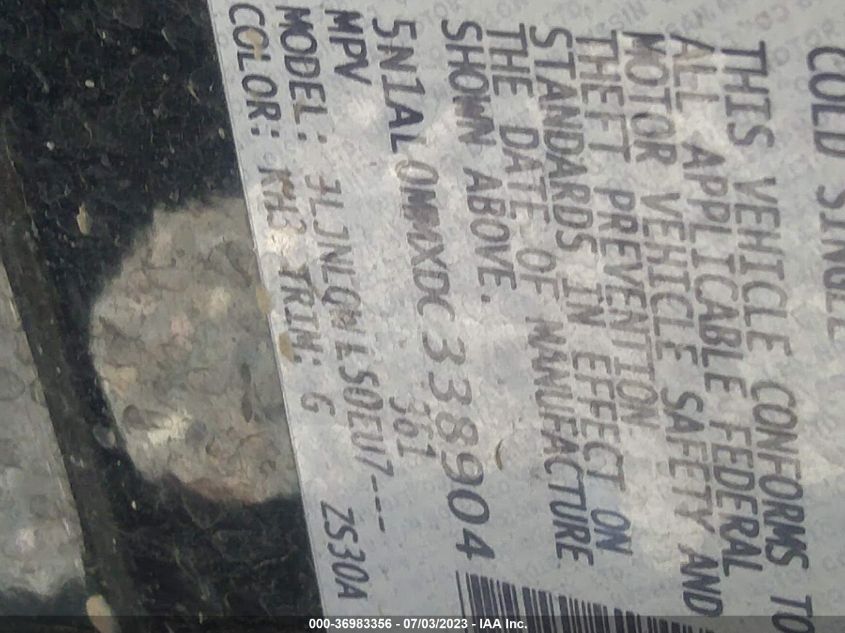 COLD SINGLE
THIS VEHICLE CONFORMS TO
ALL APPLICABLE FEDERAL
MOTOR VEHICLE SAFETY AND
THEFT PREVENTION
STANDARDS IN EFFECT ON
THE DATE OF MANUFACTURE
SHOWN ABOVE.
5N1AL0MMXDC338904
MPV 361
MODEL: JLJNLQWL50EU7--- ZS30A
COLOR: KH3 TRIM: G
000-36983356 - 07/03/2023 - IAA Inc.